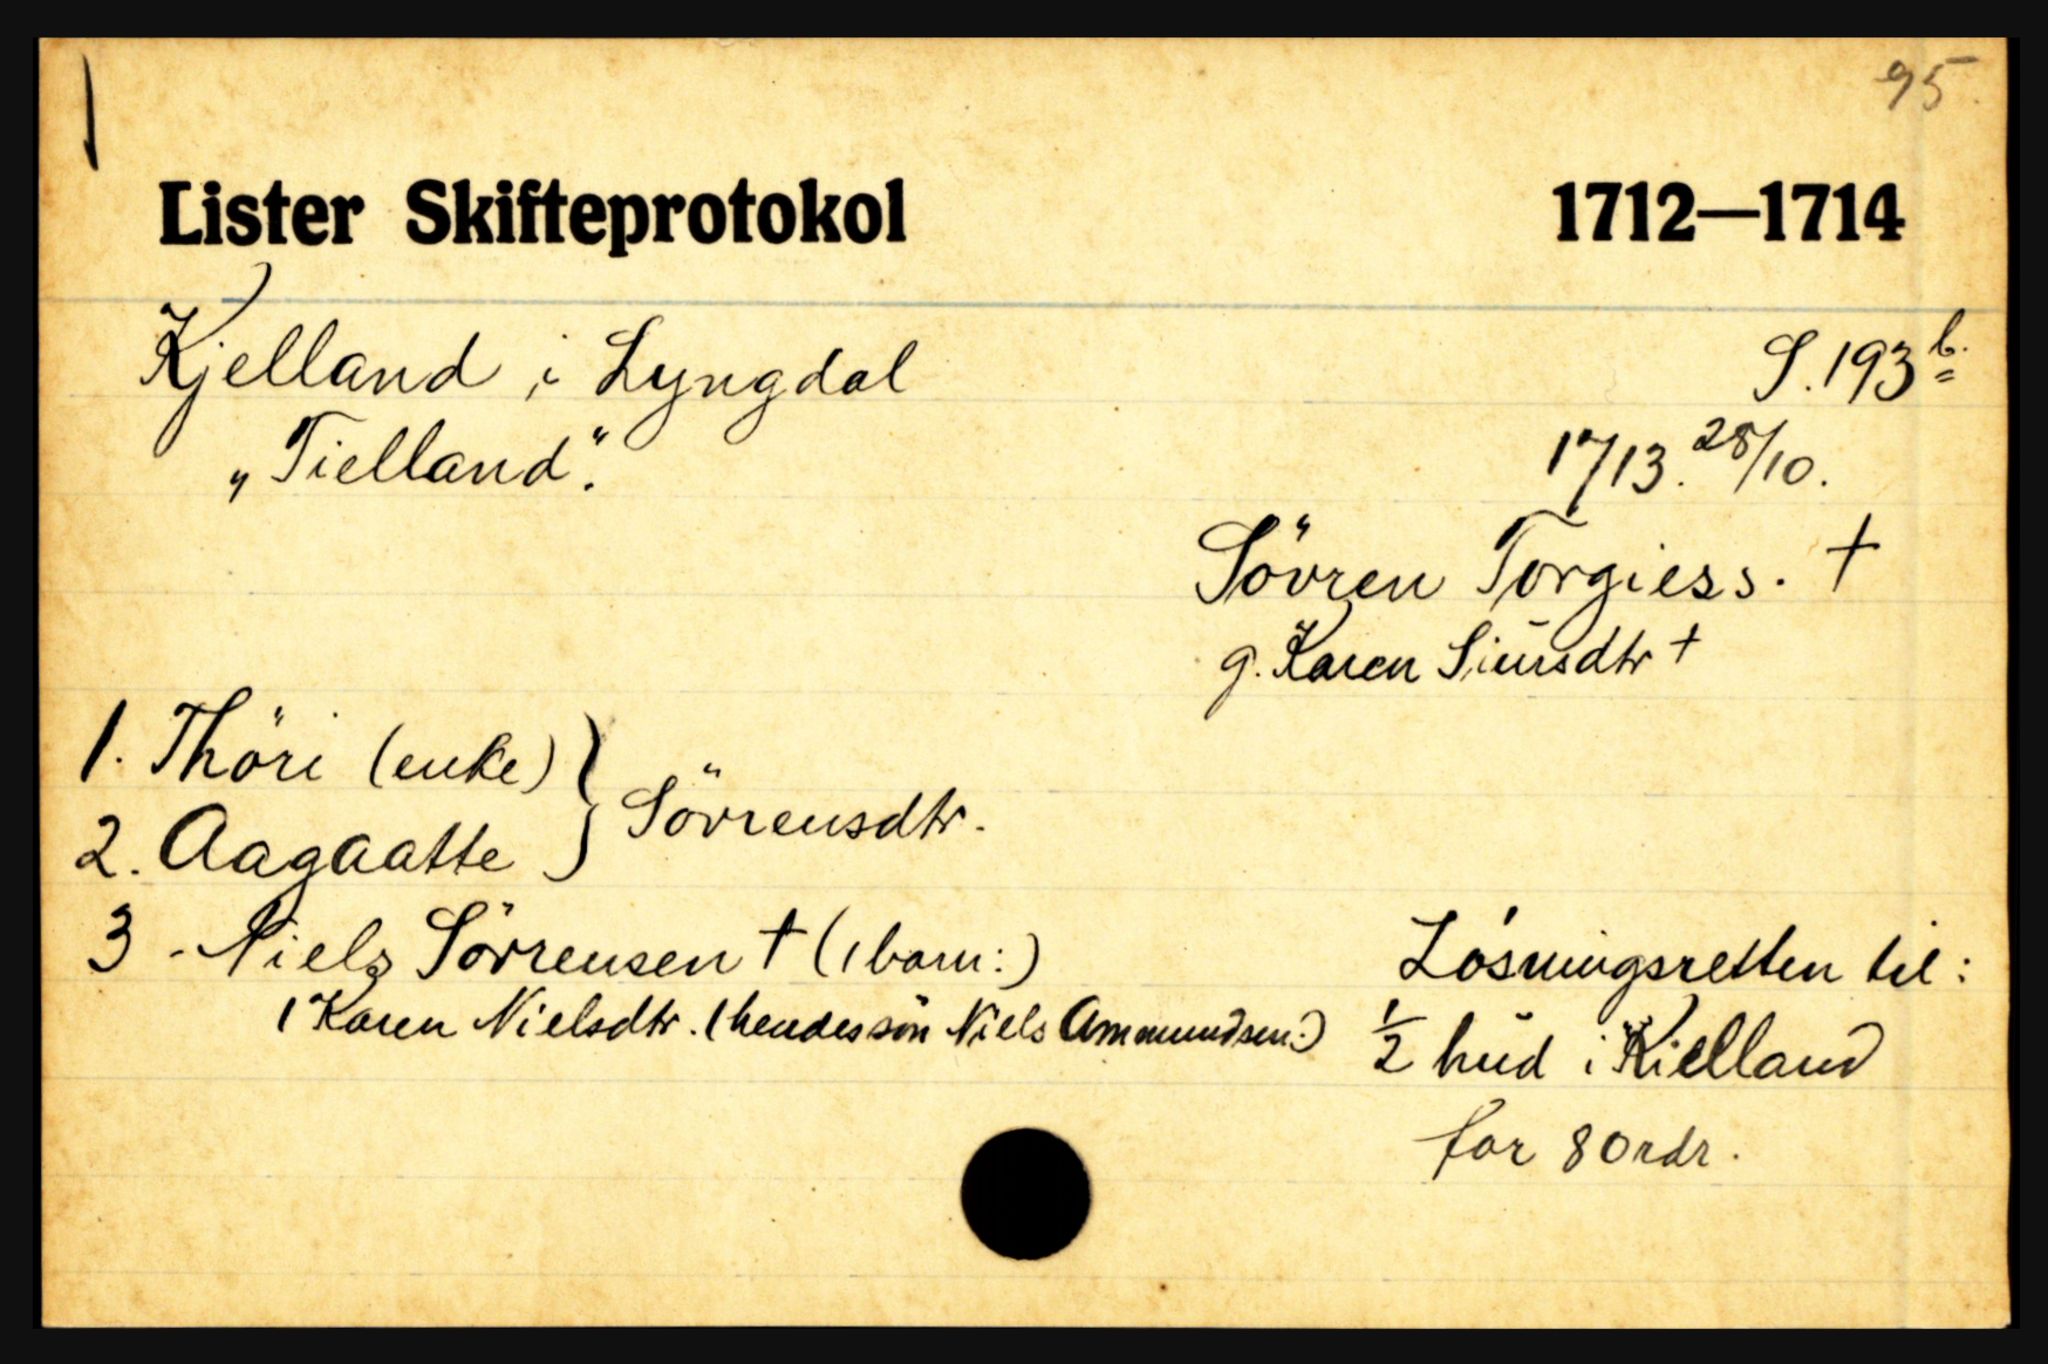 95.
Lister Skifteprotokol 1712—1714
Kjelland i Lyngdal S. 193 b.
„Tielland“. 1713. 28/10.
Sövren Torgiess. †
g. Karen Siursdtr †
1. Thöri (enke)
2. Aagaatte } Sövrensdtr.
3 - Niels Sövrensen † (1 barn:) Lösningsretten til:
1 Karen Nielsdtr. (hendes sön Niels Ammundsen:) 1/2 hud i Kielland
for 80 rdr.